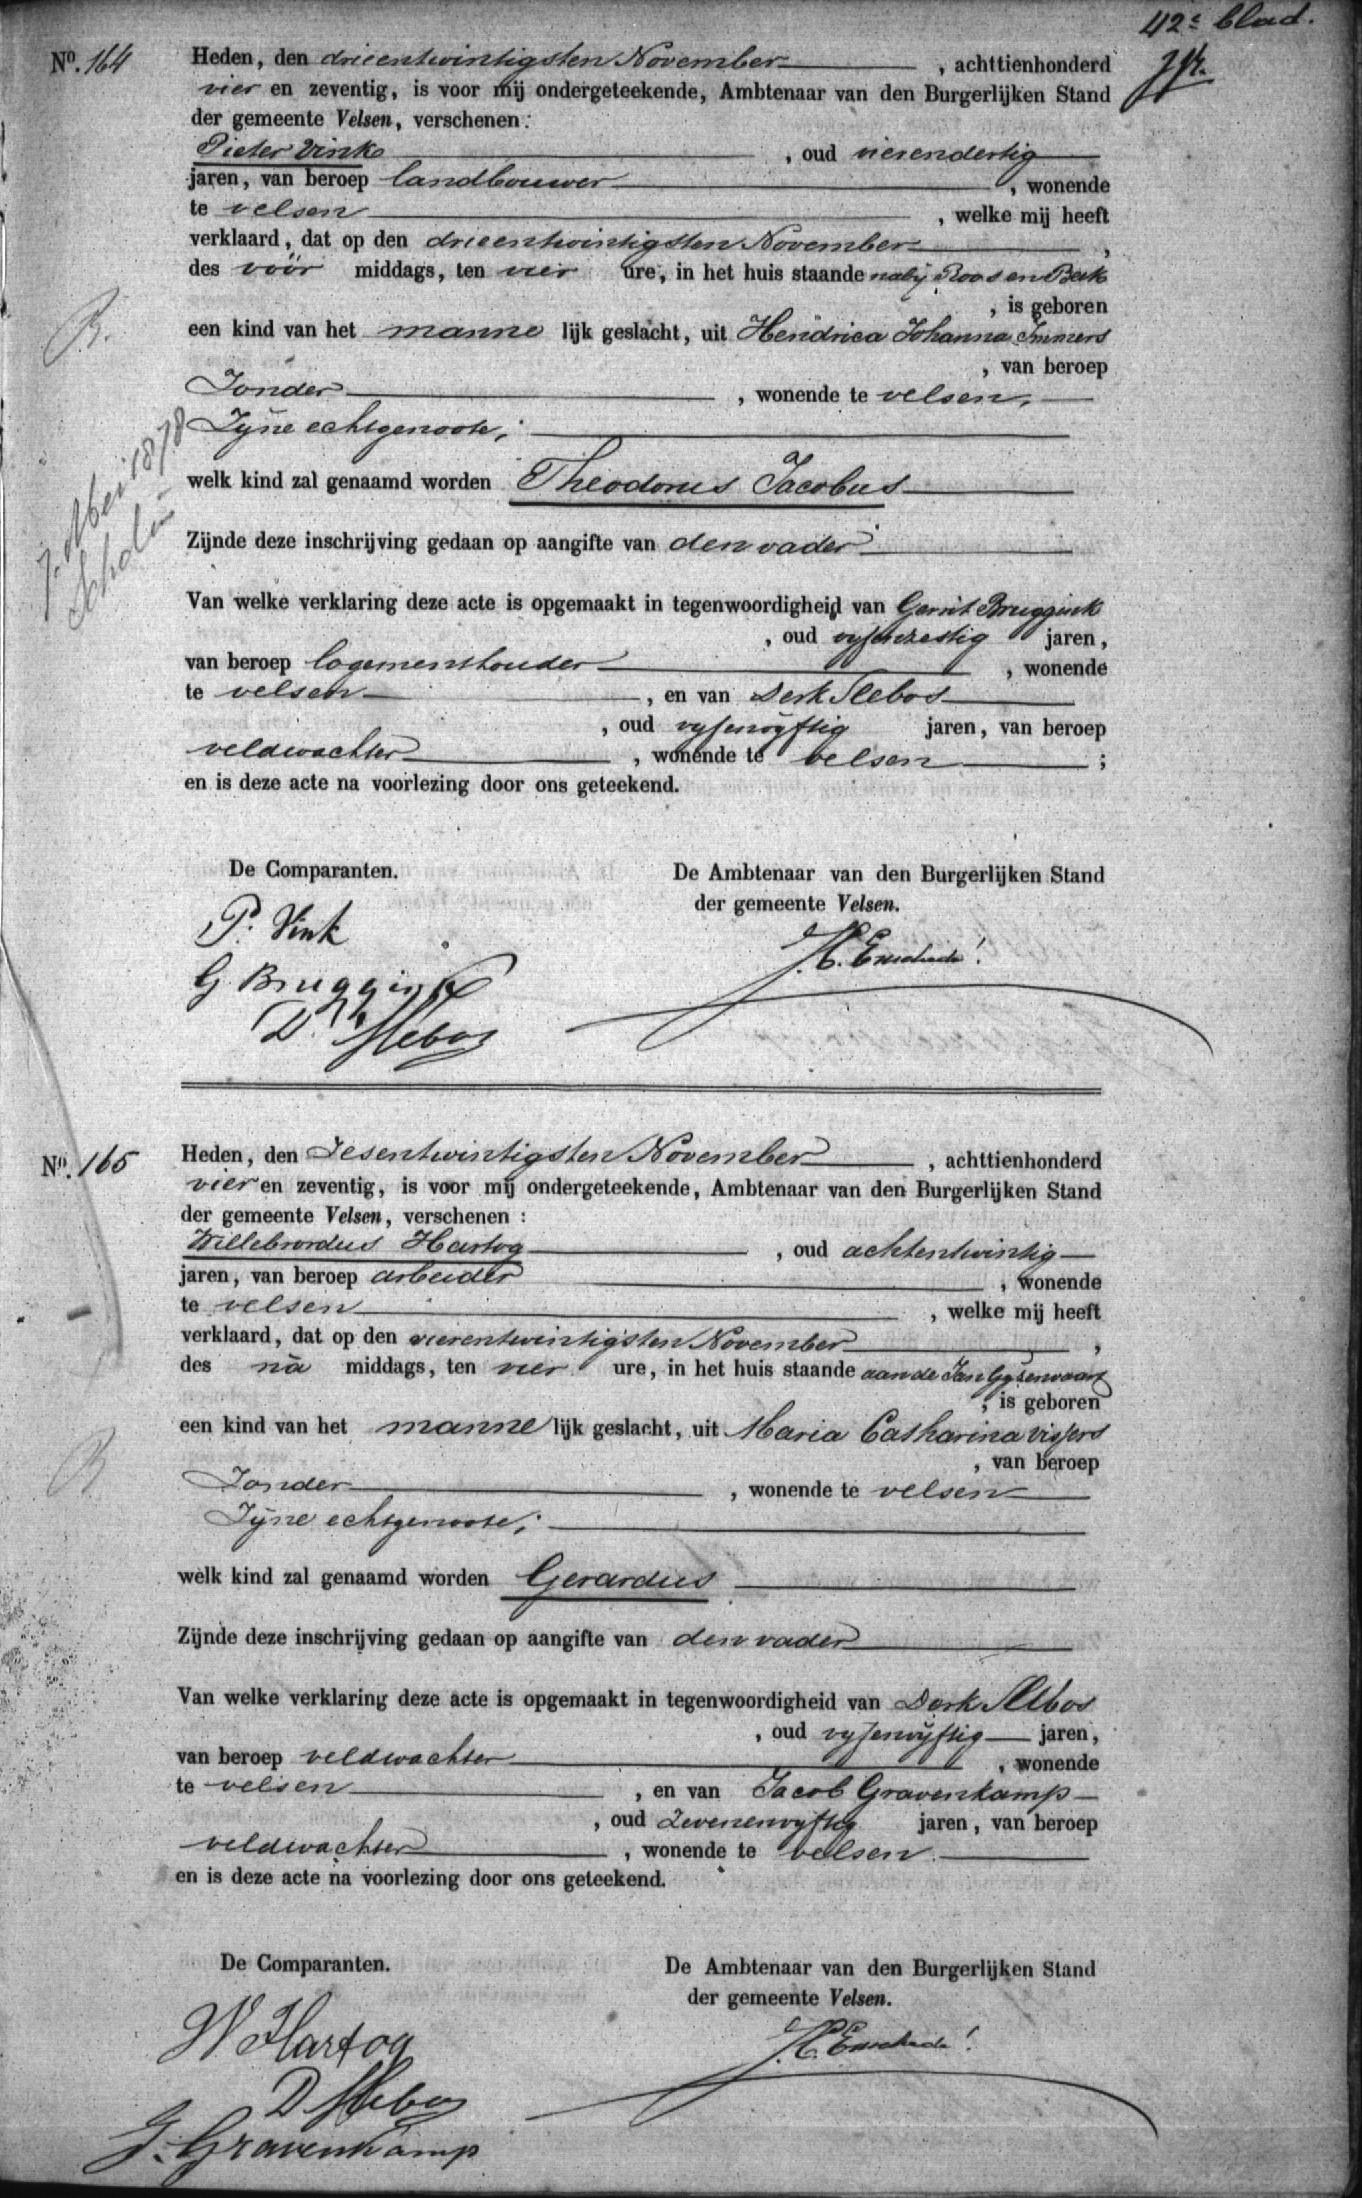 42e blad.
No. 164
Heden, den drieentwintigsten November , achttienhonderd
vier en zeventig, is voor mij ondergeteekende, Ambtenaar van den Burgerlijken Stand
der gemeente Velsen, verschenen:
Pieter Vink , oud vierendertig
jaren, van beroep landbouwer , wonende
te velsen , welke mij heeft
verklaard, dat op den drieentwintigsten November ,
des voor middags, ten vier ure, in het huis staande nabij Roos en Beek
, is geboren
een kind van het manne lijk geslacht, uit Hendrica Johanna Immers
, van beroep
Zonder , wonende te velsen,
Zijne echtgenoote;
welk kind zal genaamd worden Theodorus Jacobus
Zijnde deze inschrijving gedaan op aangifte van den vader
Van welke verklaring deze acte is opgemaakt in tegenwoordigheid van Gerrit Bruggink
, oud vijfenzestig jaren,
van beroep logementhouder , wonende
te velsen , en van Derk Slebos
, oud vijfenvijftig jaren, van beroep
veldwachter , wonende te velsen ;
en is deze acte na voorlezing door ons geteekend.
B.
7. Mei 1878
De Comparanten. De Ambtenaar van den Burgerlijken Stand
der gemeente Velsen.
P. Vink
G Bruggink
D. Slebos
J.C. Enschedé
No. 165
Heden, den Zesentwintigsten November , achttienhonderd
vier en zeventig, is voor mij ondergeteekende, Ambtenaar van den Burgerlijken Stand
der gemeente Velsen, verschenen :
Willebrordus Hartog , oud achtentwintig
jaren, van beroep arbeider , wonende
te velsen , welke mij heeft
verklaard, dat op den vierentwintigsten November ,
des na middags, ten vier ure, in het huis staande aan de Jan Gijzenvaart
, is geboren
een kind van het manne lijk geslacht, uit Maria Catharina Vissers
, van beroep
Zonder , wonende te velsen
Zijne echtgenoote;
welk kind zal genaamd worden Gerardus
Zijnde deze inschrijving gedaan op aangifte van den vader
Van welke verklaring deze acte is opgemaakt in tegenwoordigheid van Derk Slebos
, oud vijfenvijftig jaren,
van beroep veldwachter , wonende
te velsen , en van Jacob Gravenkamp
, oud Zevenenvijftig jaren, van beroep
veldwachter , wonende te velsen.
en is deze acte na voorlezing door ons geteekend.
B
De Comparanten. De Ambtenaar van den Burgerlijken Stand
der gemeente Velsen.
W Hartog
D Slebos
J. Gravenkamp
J.C. Enschedé